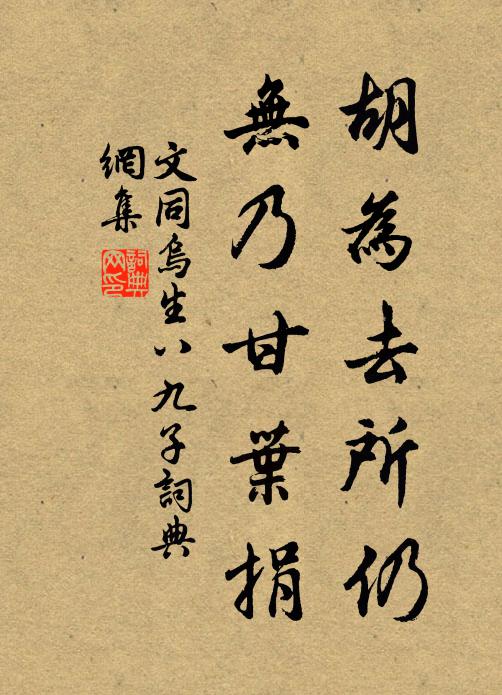 胡為去所仍
無乃甘葉捐
文同烏生八九子詞典
網集
詞典網印